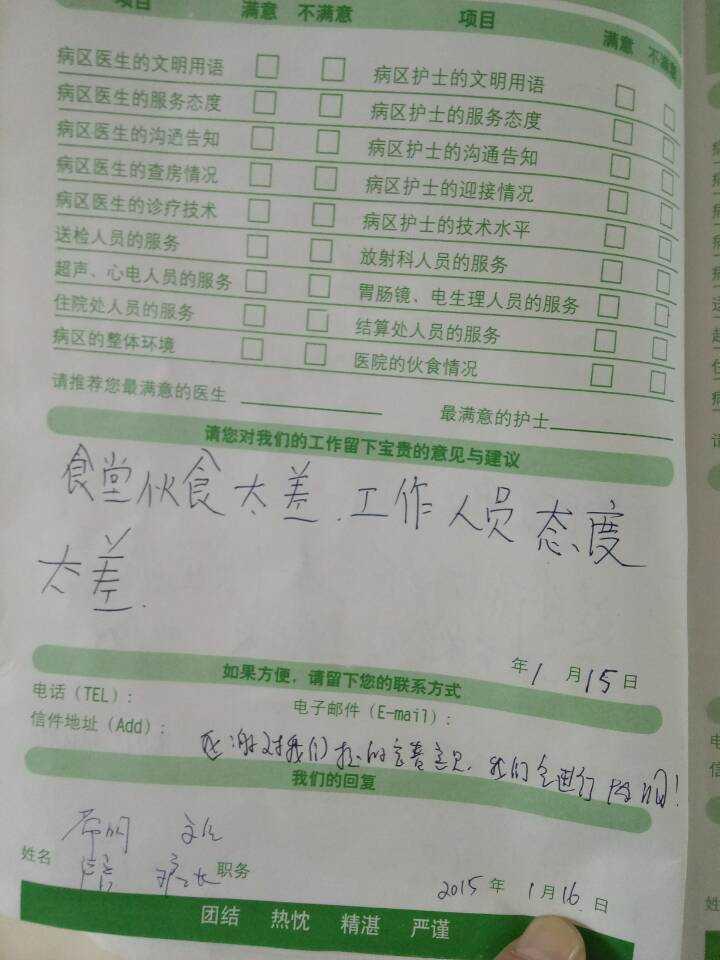 项目 满意 不满意 项目 满意 不满意
病区医生的文明用语 病区护士的文明用语
病区医生的服务态度 病区护士的服务态度
病区医生的沟通告知 病区护士的沟通告知
病区医生的查房情况 病区护士的迎接情况
病区医生的诊疗技术 病区护士的技术水平
送检人员的服务 放射科人员的服务
超声、心电人员的服务 胃肠镜、电生理人员的服务
住院处人员的服务 结算处人员的服务
病区的整体环境 医院的伙食情况
请推荐您最满意的医生 最满意的护士
请您对我们的工作留下宝贵的意见与建议
食堂伙食太差.工作人员态度
太差.
年1月15日
如果方便，请留下您的联系方式
电话（TEL）： 电子邮件（E-mail）：
信件地址（Add）：
感谢对我们提的宝贵意见.我们会进行
我们的回复
姓名 职务
2015年1月16日
团结 热忱 精湛 严谨